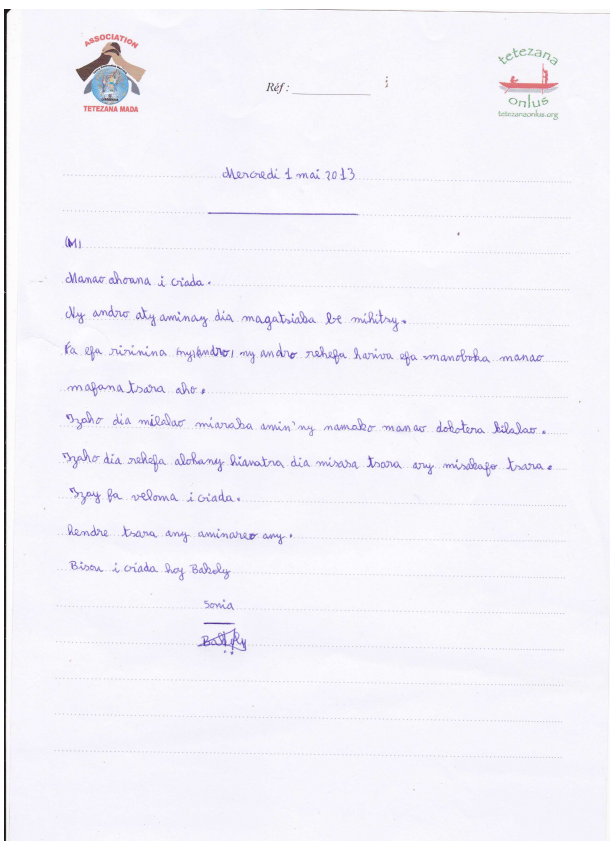 ASSOCIATION
TETEZANA MADA
Réf : ____________
tetezana
onlus
tetezanaonlus.org
Mercredi 1 mai 2013
Manao ahoana i criada.
Ny andro aty aminay dia magatsiaba be mihitsy.
Fa efa ririnina ny andro, ny andro rehefa hariva efa manoboka manao
mafana tsara aho.
Izaho dia milalao miaraka amin'ny namako manao dokotera kilalao.
Izaho dia rehefa alohany hianatra dia misasa tsara ary misakafo tsara.
Izay fa veloma i criada.
hendre tsara any aminareo any.
Bisou i criada hoy Bakoly
Sonia
Bakoly